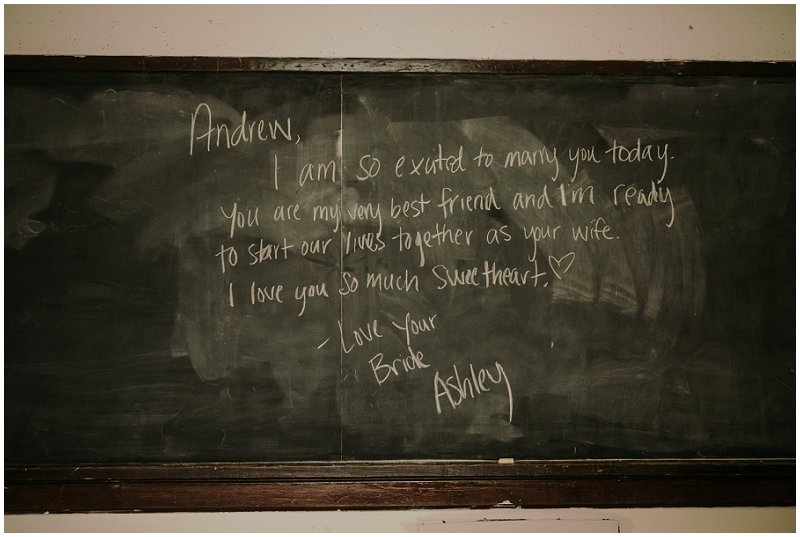 Andrew,
I am so excited to marry you today.
You are my very best friend and I'm ready
to start our lives together as your wife.
I love you so much sweetheart. ♡
- Love your
Bride
Ashley